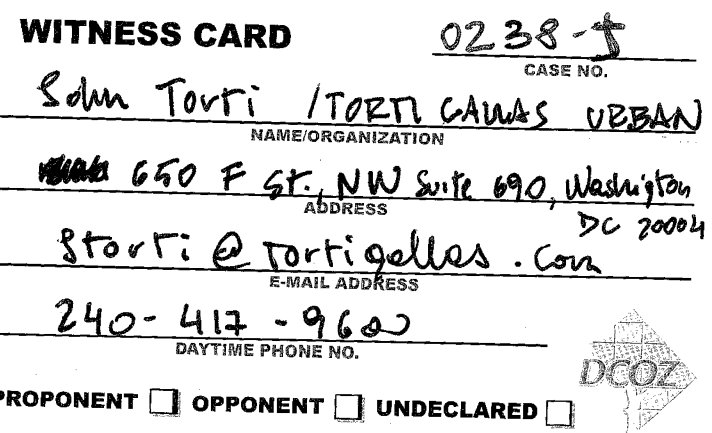 WITNESS CARD
0238-J
CASE NO.
John Torti / TORTI GALLAS URBAN
NAME/ORGANIZATION
650 F St., NW Suite 690, Washington
DC 20004
ADDRESS
jtorti@tortigallas.com
E-MAIL ADDRESS
240-417-9600
DAYTIME PHONE NO.
DCOZ
PROPONENT OPPONENT UNDECLARED